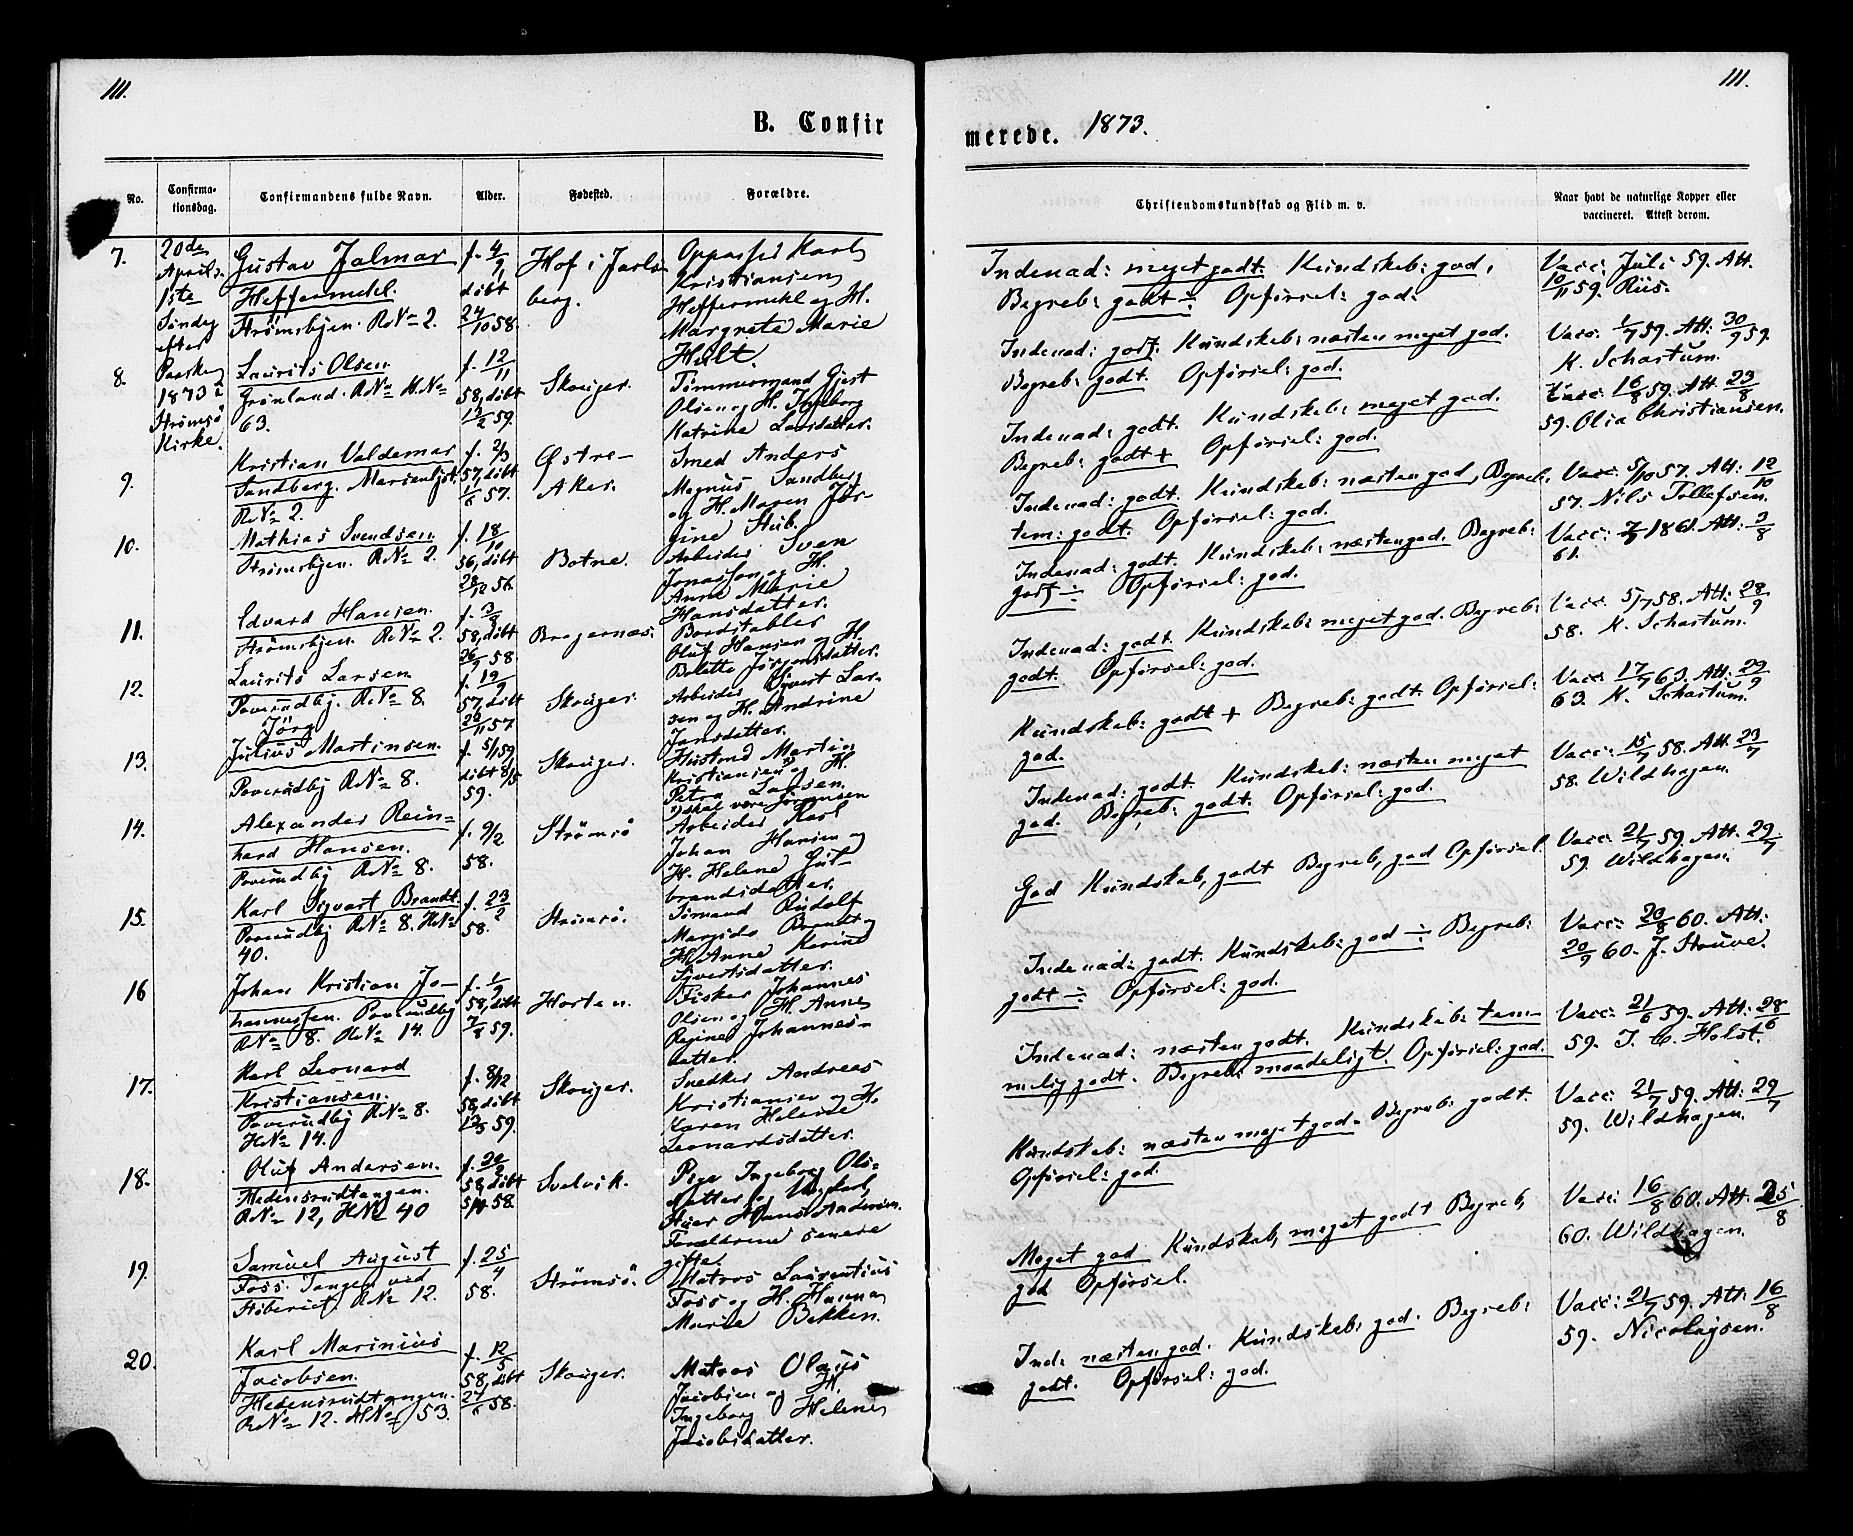 111.
111.
B. Confir
merede. 1873.
No.
Confirma-
tionsdag.
Confirmandens fulde Navn.
Alder.
Fødested.
Forældre.
Christendomskundskab og Flid m. v.
Naar havt de naturlige Kopper eller
vaccineret. Attest derom.
20de
April
1ste
Søndag
efter
Paaske
1873 i
Strømsø
Kirke.
7.
Gustav Jalmar
Heffermehl.
Strømsbjen. RN 2.
f. 4/9
døbt
24/10 58.
Hof i Jarls
berg.
Oppasser Karl
Kristiansen
Heffermehl og H.
Margrete Marie
Holt.
Indenad: meget godt. Kundskab: god,
Begreb: godt ÷ Opførsel: god.
Vacc. Juli 59. Att.
10/11 59. Riis.
8.
Laurits Olsen.
Grønland. RN HN
63.
f. 12/11
58, døbt
13/2 59.
Skouger.
Tømmermand Gjert
Olsen og H. Ingeborg
Katrine Larsdatter.
Indenad: godt. Kundskab: næsten meget god.
Begreb: godt. Opførsel: god.
Vacc. 1/7 59. Att: 30/9 59.
K. Schartum.
9.
Kristian Valdemar
Sandberg. Marienlyst.
RN 2.
f. 2/3
57, døbt
1/6 57.
Østre-
Aker.
Smed Anders
Magnus Sandberg
og H. Maren Jør-
gine Stub.
Indenad: godt. Kundskab: meget god.
Begreb: godt + Opførsel: god.
Vacc: 16/8 59. Att. 23/8
59. Olia Christiansen.
10.
Mathias Svendsen
Strømsbjen. RN 2.
f. 18/10
56, døbt
28/12 56.
Botne.
Arbeider Sven
Jonassen og H.
Anne Marie
Hansdatter.
Indenad: godt. Kundskab: næsten god, Begreb.
tem: godt. Opførsel: god.
Vacc: 5/10 57. Att: 12/10
57. Nils Tollefsen.
11.
Edvard Hansen.
Strømsbjen. RN 2.
f. 3/8
58, døbt
26/9 58.
Bragernæs.
Bordstabler
Oluf Hansen og H.
Bolette Jørgensdatter.
Indenad: godt. Kundskab: næsten god. Begreb:
godt ÷ Opførsel: god.
Vacc: 7/7 1861. Att: 3/8
61.
12.
Laurits Larsen
Poverudbj. RN 8.
f. 19/9
57, døbt
28/11 57
Skouger.
Arbeider Sivert Lar-
sen og H. Andrine
Jansdatter.
Indenad: godt. Kundskab: meget god. Begreb:
godt. Opførsel: god.
Vacc. 5/7 58. Att: 28/9
58. K. Schartum.
13.
Jörg
Julius Martinsen.
Poverudbj RN 8.
f. 5/1 59
døbt 8/5
59.
Skouger.
Husmd Martin
Kristiansen og H.
Petra Larsen.
skal være Jörgensen
Kundskab: godt + Begreb: godt. Opførsel:
god.
Vacc: 17/7 63. Att: 29/9
63. K. Schartum.
14.
Alexander Rein=
hard Hansen.
Poverudbj RN 8.
f. 9/2
58.
Strömsö
Arbeider Karl
Johan Hansen og
H. Helene Gul-
brandsdatter.
Indenad: godt. Kundskab: næsten meget
god. Begreb: godt. Opførsel: god.
Vacc: 15/7 58. Att. 23/7
58. Wildhagen.
15.
Karl Sigvart Brandt.
Poverudbj RN 8. HN
40.
f. 23/2
58.
Strömsö.
Sømand Rudolf
Brandt og
H. Anne Karine
Syvertsdatter.
God Kundskab, godt Begreb, god Opførsel.
Vacc: 21/7 59. Att: 29/7
59. Wildhagen.
16
Johan Kristian Jo-
hannessen. Poverudbj
RN 8. HN 14.
f. 1/9
58, døbt
7/8 59.
Horten.
Fisker Johannes
Olsen og H. Anne
Regine Johannes-
datter.
Indenad: godt. Kundskab: god ÷ Begreb:
godt ÷ Opførsel: god.
Vacc: 20/8 60. Att:
20/9 60. J. Struve.
17.
Karl Leonard
Kristiansen.
Poverudbj RN 8.
HN 14.
f. 8/12
58, døbt
13/3 59.
Skouger.
Snedker Andreas
Kristiansen og H.
Karen Helene
Leonardsdatter.
Indenad: næsten godt. Kundskab: tem-
melig godt. Begreb: maadeligt. Opførsel: god.
Vacc: 21/6 59. Att: 28/6
59. J. C. Holst.
18.
Oluf Andersen.
Hedensrudtangen.
RN 12, HN 40
f. 20/2
58, døbt
5/4 58.
Svelvik.
Pige Ingeborg Ols=
datter og Ungkarl,
Hans Andersen.
Forældrene senere
gifte.
Kundskab: næsten meget god. Begreb: godt.
Opførsel: god.
Vacc: 21/7 59. Att: 29/7
59. Wildhagen.
19.
Samuel August
Foss. Tangen ved
Støberiet, RN 12.
f. 25/4
58.
Strömsö.
Matros Laurentius
Foss og H. Hanna
Marie Bekken.
Meget god Kundskab, meget godt Begreb,
god Opførsel.
Vacc: 16/8 60. Att: 25/8
60. Wildhagen.
20.
Karl Marinius
Jacobsen.
Hedensrudtangen.
RN 12. HN 53.
f. 12/5
58, døbt
27/6 58.
Skouger.
Matros Olaus
Jacobsen og H.
Ingeborg Helene
Jacobsdatter.
Ind: næsten god. Kundskab: god. Begreb:
godt. Opførsel: god.
Vacc: 21/7 59. Att: 16/8
59. Nicolaysen.